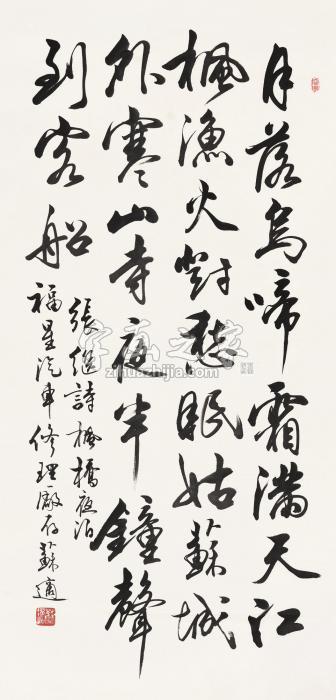 月落烏啼霜滿天江
楓漁火對愁眠姑蘇城
外寒山寺夜半鐘聲
到客船
張繼詩楓橋夜泊
福星汽車修理廠存蘇適
字画之家
zihuazhijia.com